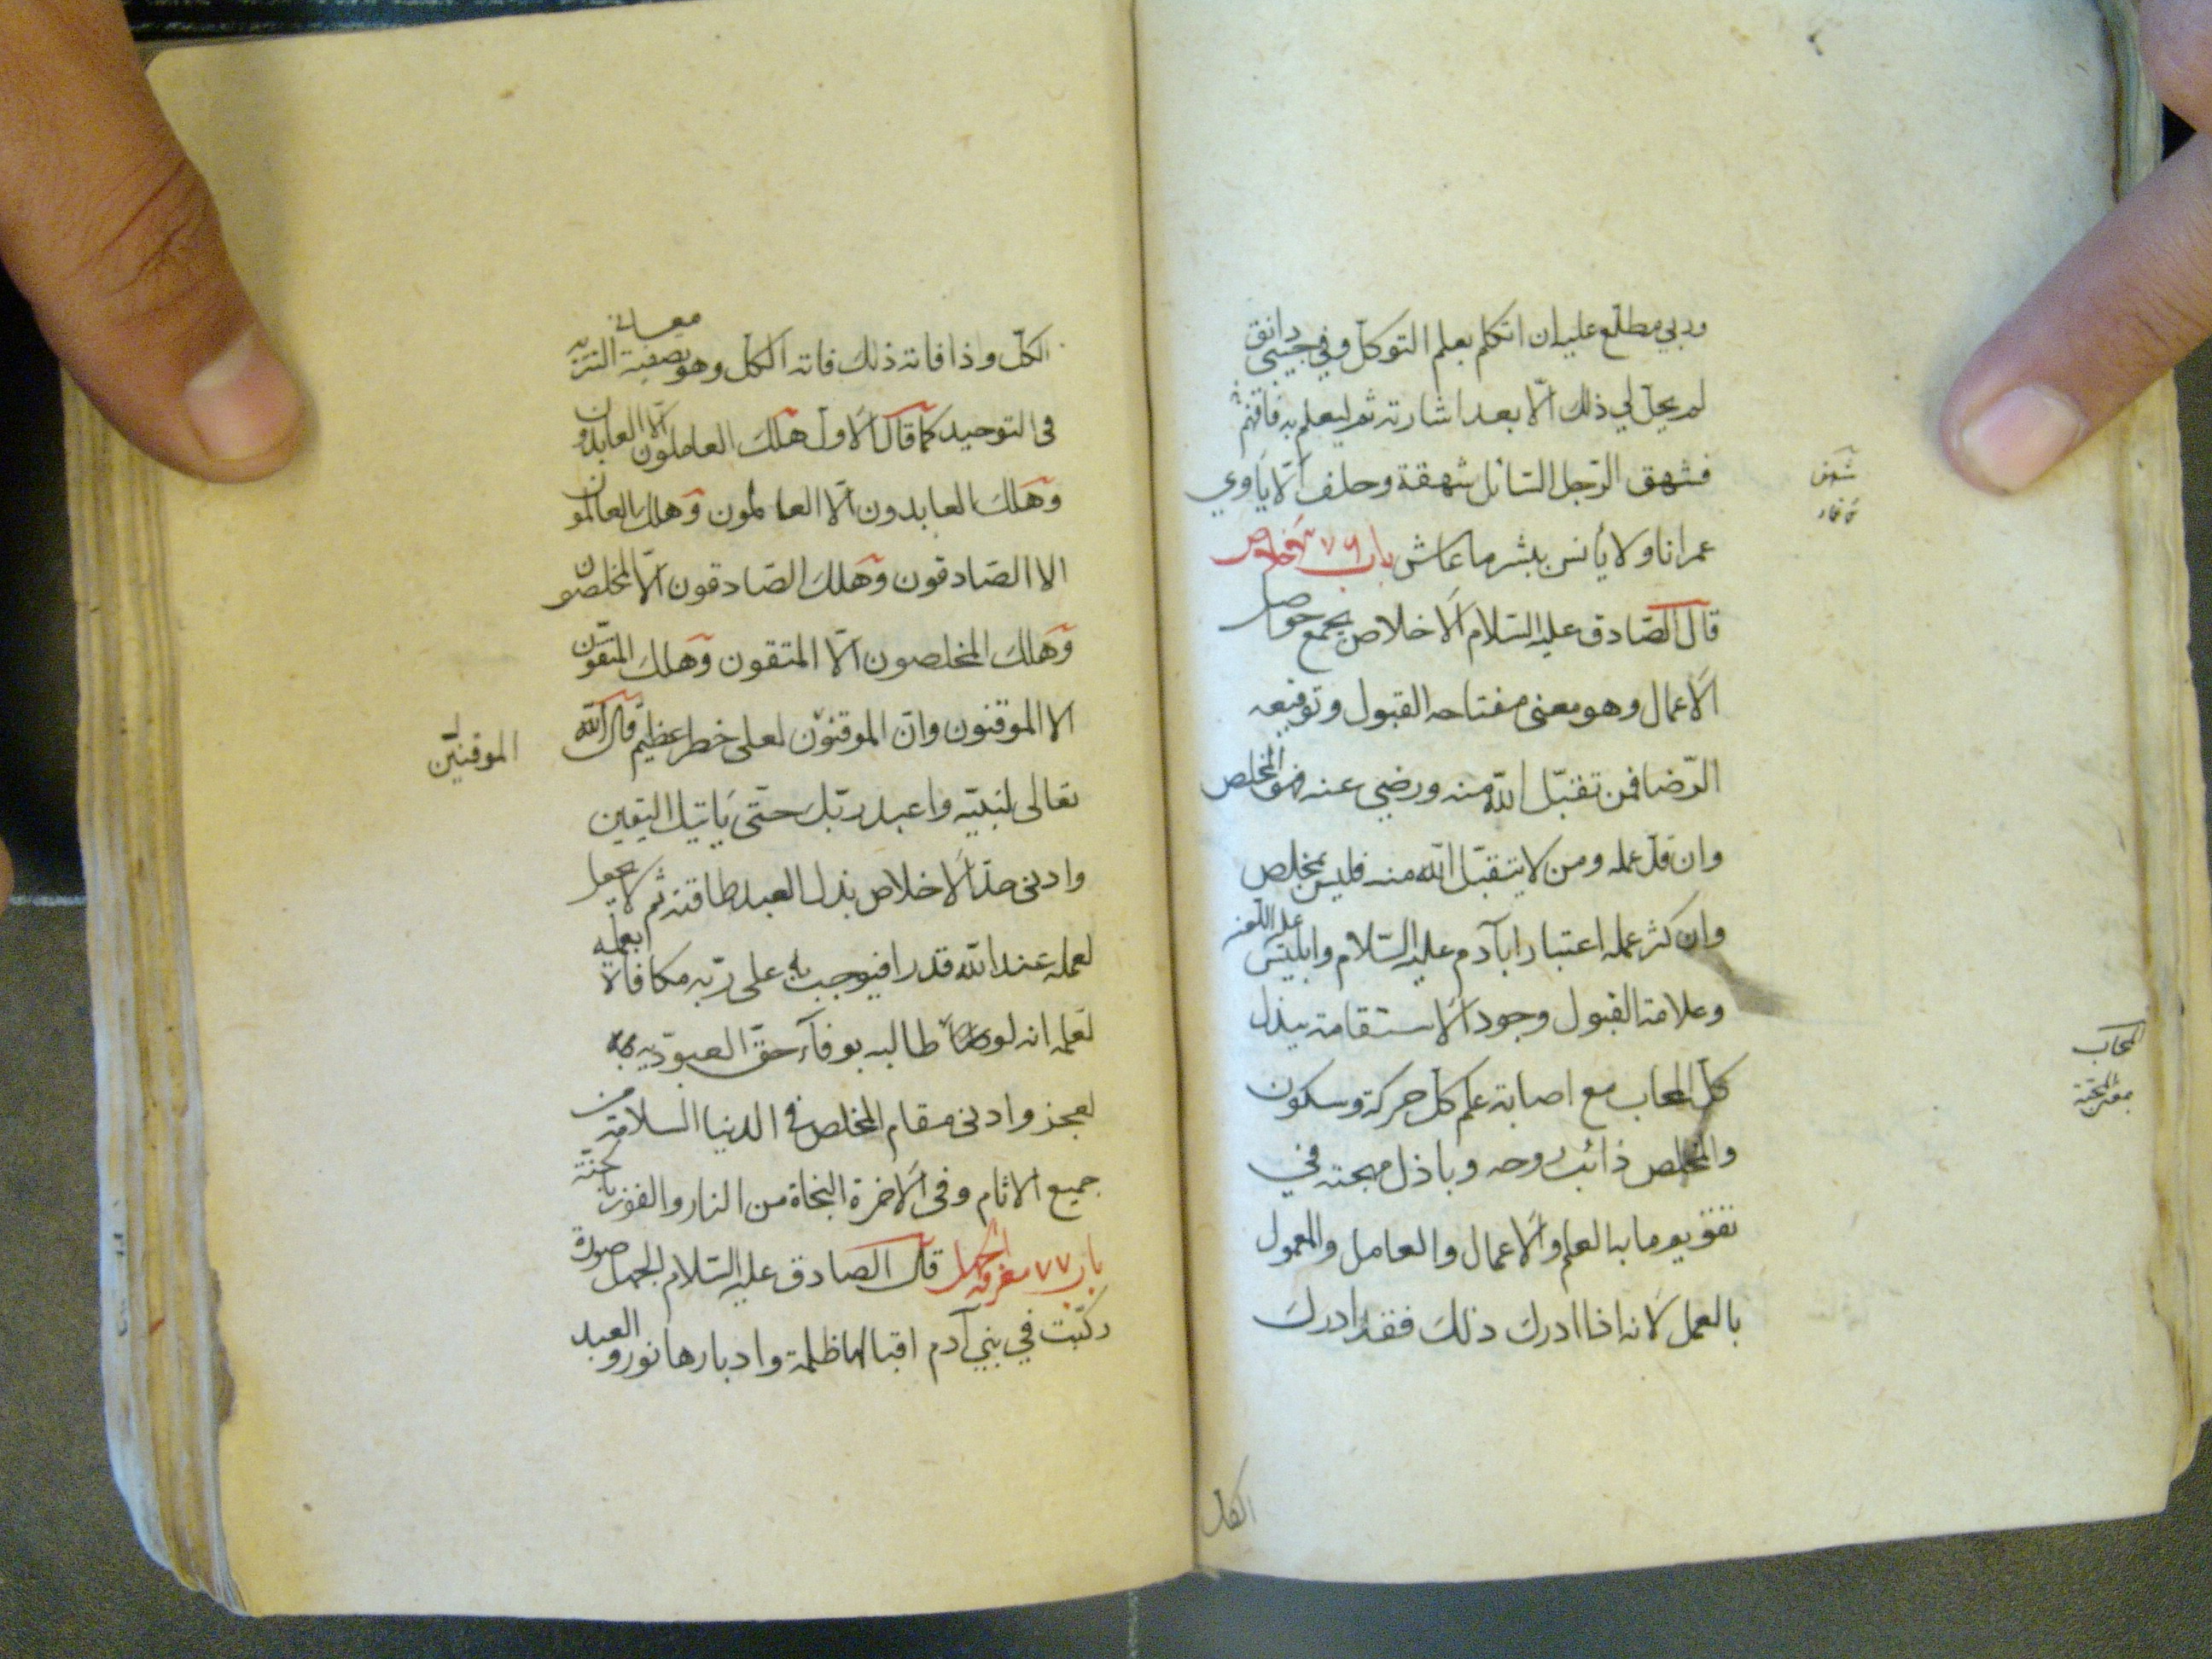 وربي مطلع عليه ان اتكلم بعلم التوكل وفي جيبي دانق
لم يحل لي ذلك الّا بعد اشارته ثم ليعلم به
فشهق الرّجل السّائل شهقة وحلف الّا ياوي
عمرانا ولا يأنس ببشر ما عاش باب ٧٦
قال الصّادق عليه السّلام الاخلاص يجمع حواصل
الاعمال وهو معنى مفتاحه القبول وتوقيعه
الرّضا فمن تقبّل الله منه ورضي عنه فهو المخلص
وان قلّ عمله ومن لا يتقبّل الله منه فليس بمخلص
وان كثر عمله اعتبارا بآدم عليه السّلام وابليس عليه اللعنة
وعلامة القبول وجود الاستقامة ببذل
كلّ المحاب مع اصابة علم كل حركة وسكون
والمخلص ذائب روحه وباذل مهجته في
تقويم ما به العلم والاعمال والعامل والمعمول
بالعمل لانه اذا ادرك ذلك فقد ادرك
المحاب
الكل
الكلّ واذا فاته ذلك فاته الكلّ وهو تصفية معاني التنزيه
فى التوحيد كما قال الاول هلك العاملون الّا العابدون
وهلك العابدون الّا العالمون وهلك العالمون
الا الصّادقون وهلك الصّادقون الّا المخلصون
وهلك المخلصون الّا المتقون وهلك المتقون
الا الموقنون وانّ الموقنون لعلى خطر عظيم قال الله
الموقنين
تعالى لنبيّه واعبد ربّك حتّى ياتيك اليقين
وادنى حدّ الاخلاص بذل العبد طاقته ثم لا يجعل
لعمله عند الله قدرا فيوجب به على ربّه مكافاة بعمله
لعلمه انه لو طالبه بوفآء حقّ العبوديه
لعجز وادنى مقام المخلص فى الدنيا السلامة من
جميع الاثام وفى الاخرة النجاة من النار والفوز بالجنّة
باب ٧٧ معرفة الجهل قال الصادق عليه السّلام الجهل صورة
ركّبت في بني آدم اقبالها ظلمة وادبارها نور والعبد